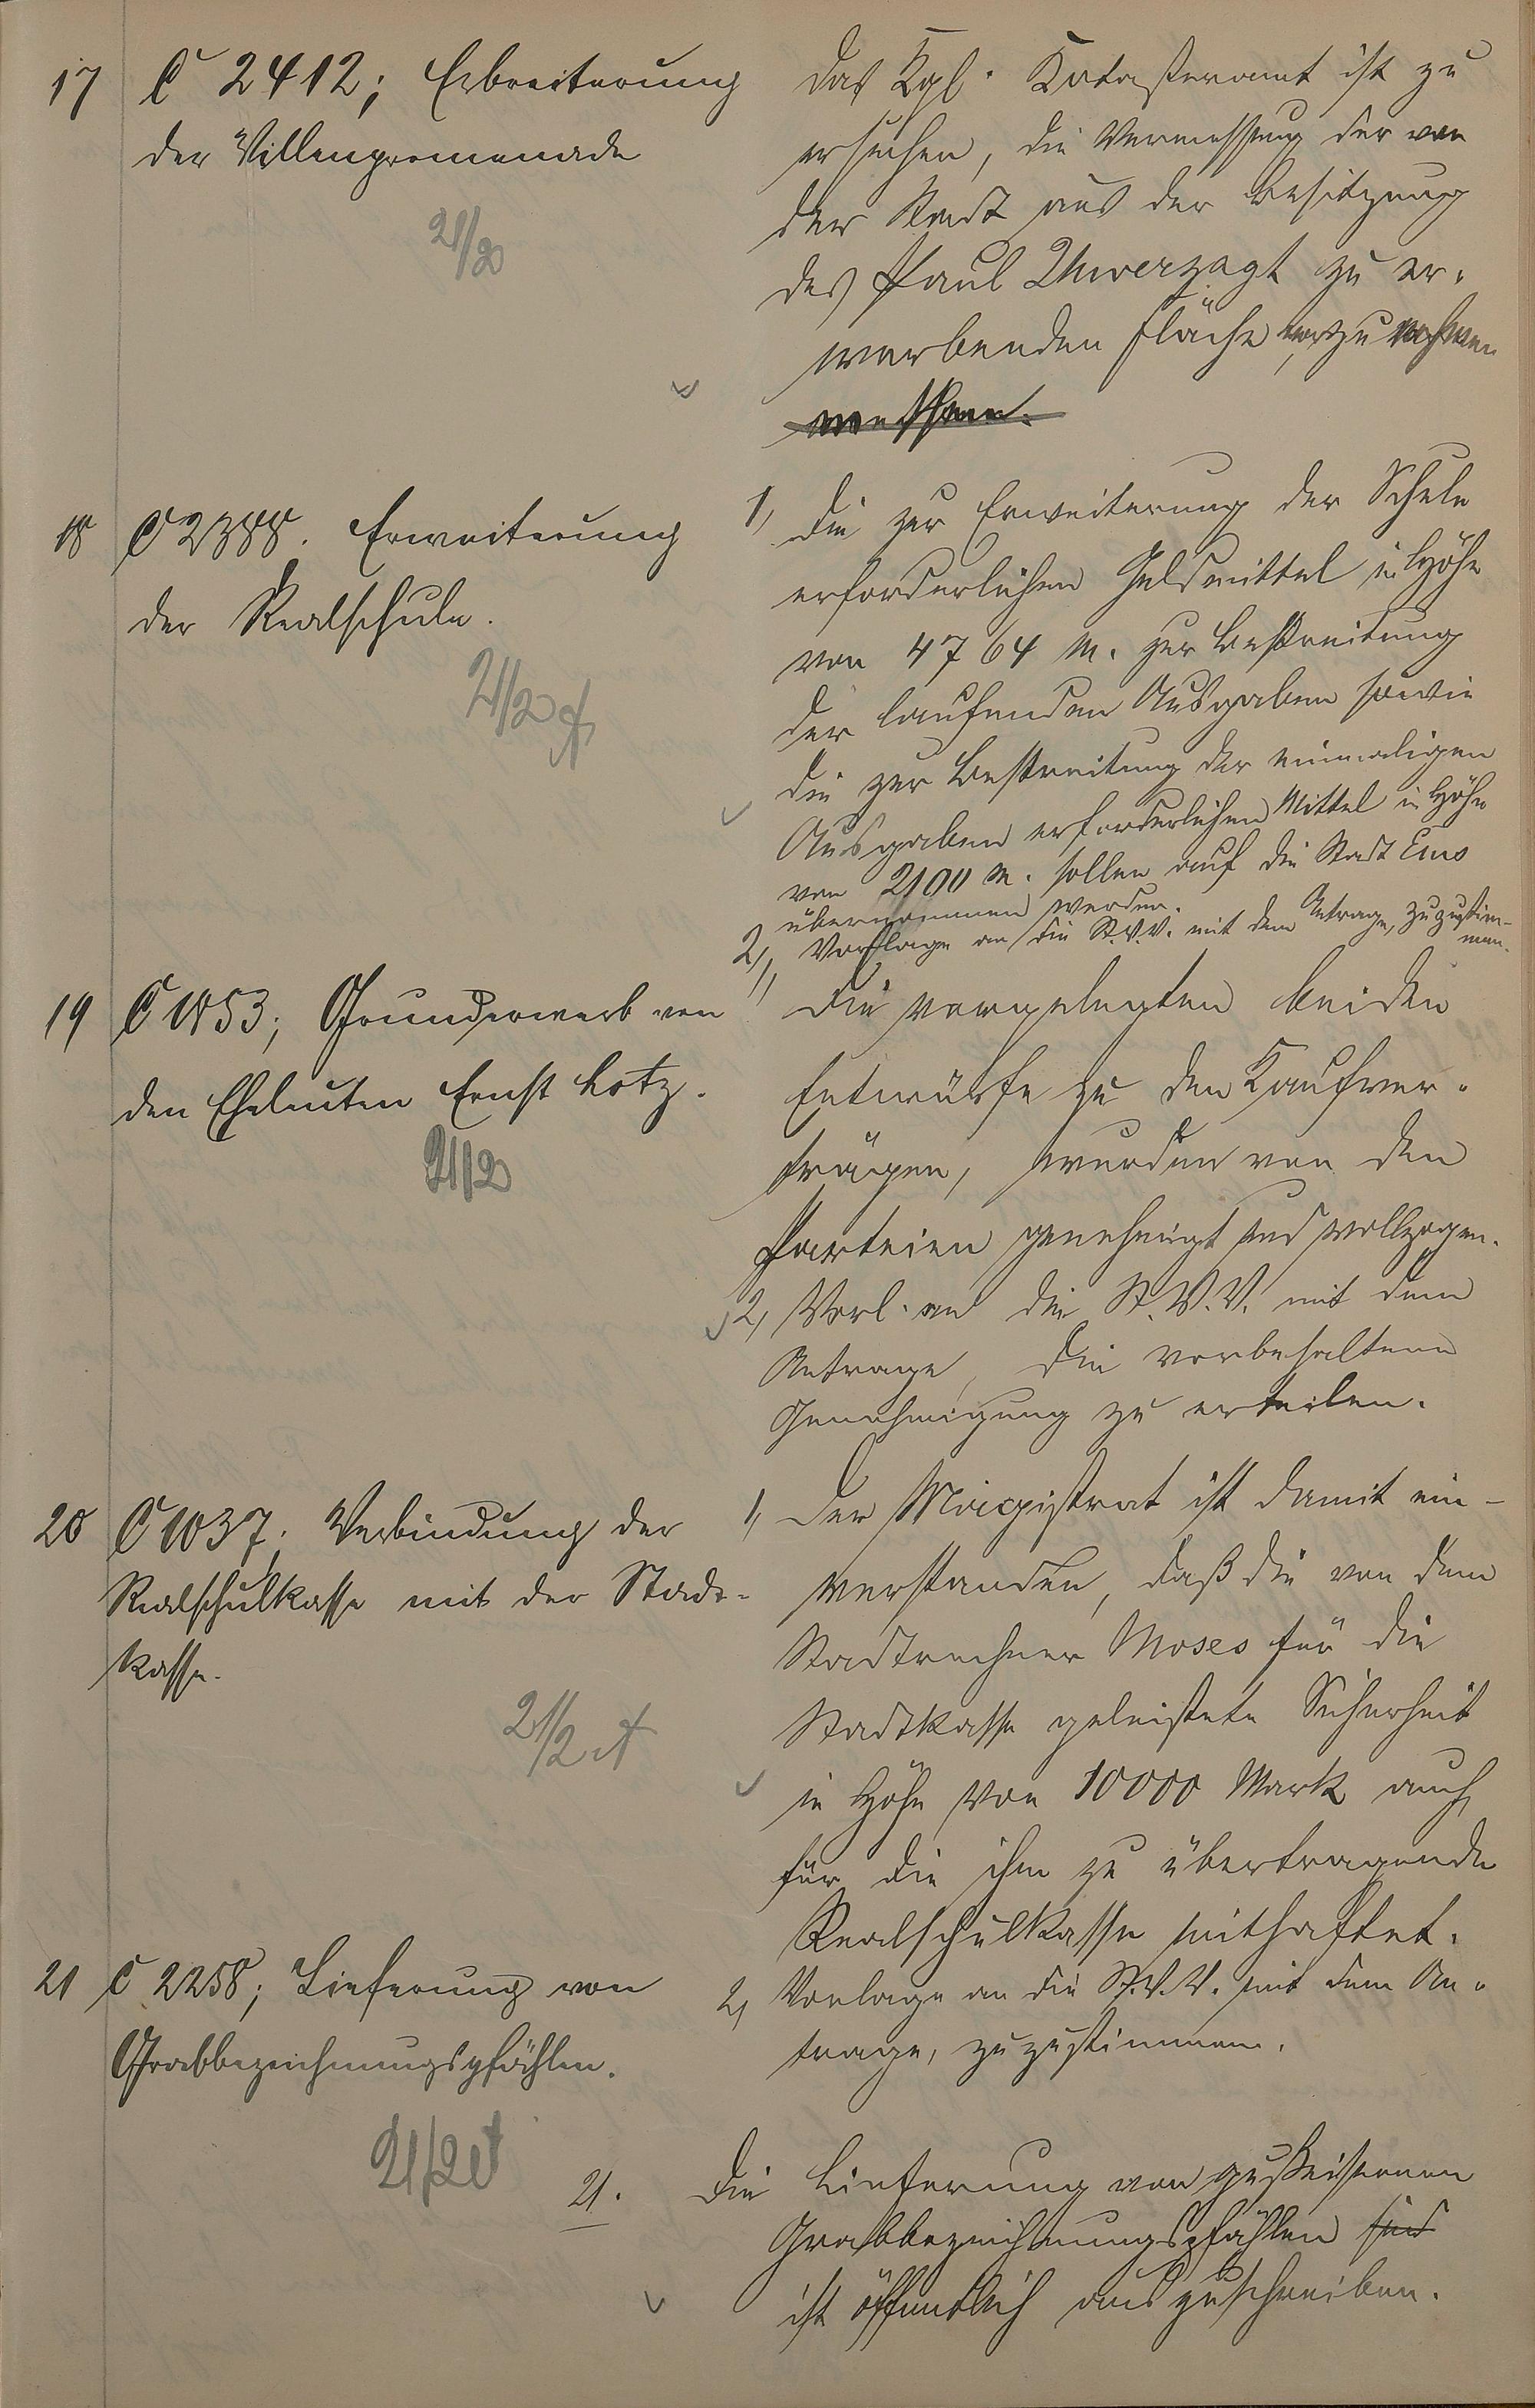 17 C 2412; Erbreiterung
der Villenpromenade
21/2
Das Kgl. Katasteramt ist zu
ersuchen, die Vermessung der von
der Stadt aus der Besitzung
des Paul Unverzagt zu er-
werbenden Fläche vorzunehmen
18 C 2388. Erweiterung
der Realschule.
21/2
1, Die zur Erweiterung der Schule
erforderlichen Geldmittel in Höhe
von 4764 M. zur Bestreitung
der laufenden Ausgaben sowie
die zur Bestreitung der einmaligen
Ausgaben erforderlichen Mittel in Höhe
von 2100 M. sollen auf die Stadt Ems
übernommen werden.
2, Vorlage an die St.V.V. mit dem Antrage, zuzustim-
men.
19 C 1853; Grunderwerb von
den Eheleuten Ernst Lotz.
21/2
1, Die vorgelegten beiden
Entwürfe zu den Kaufver-
trägen, wurden von den
Parteien genehmigt und vollzogen.
2, Vorl. an die St.V.V. mit dem
Antrage, die vorbehaltene
Genehmigung zu erteilen.
20 C 1037. Verbindung der
Realschulkasse mit der Stadt-
kasse.
21/2
1, Der Magistrat ist damit ein-
verstanden, daß die von dem
Stadtrechner Moses für die
Stadtkasse geleistete Sicherheit
in Höhe von 10000 Mark auch
für die ihm zu übertragende
Realschulkasse mithaftet.
2, Vorlage an die St.V.V. mit dem An-
trage, zuzustimmen.
21 C 2258; Lieferung von
Grabbezeichnungspfählen.
21/2
21. Die Lieferung von gußeisernen
Grabbezeichnungspfählen sind
ist öffentlich auszuschreiben.